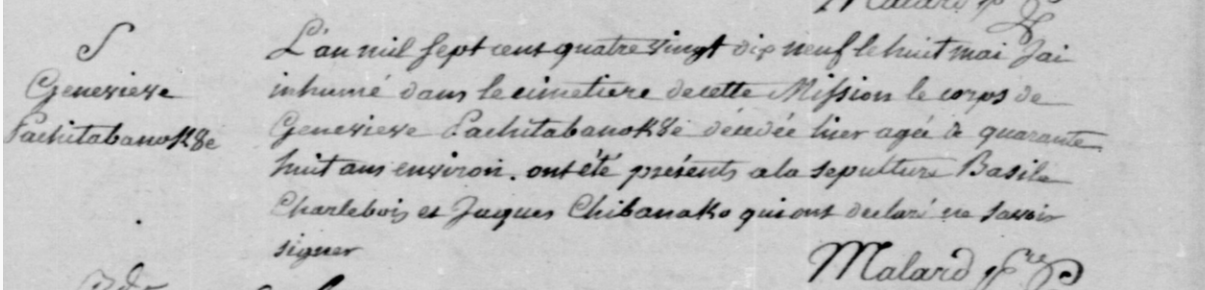 S
Genevieve
Pachitabanok8e
L'an mil sept cent quatre vingt dix neuf le huit mai J'ai
inhumé dans le cimetiere de cette Mission le corps de
Genevieve Pachitabanok8é décedée hier agée de quarante
huit ans environ. ont été présents a la sepulture Basile
Charlebois et Jaques Chibanako qui ont declaré ne savoir
signer
Malard ptre